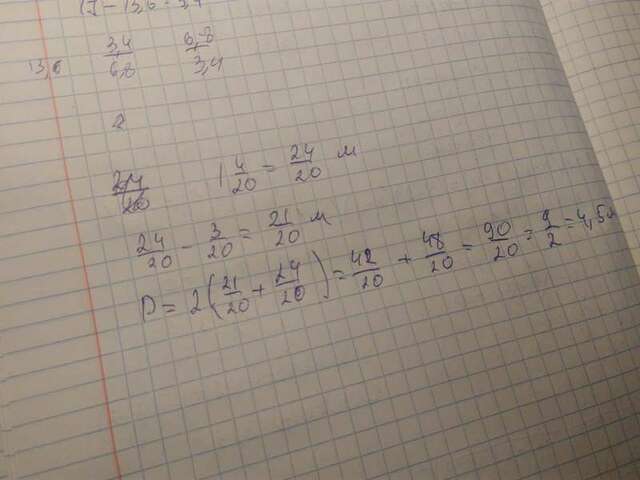 17 - 13,6 = 3,4
13,6 3,4/6,8 6,8/3,4
2
24/20 1 4/20 = 24/20 м
24/20 - 3/20 = 21/20 м
P = 2(21/20 + 24/20) = 42/20 + 48/20 = 90/20 = 9/2 = 4,5м